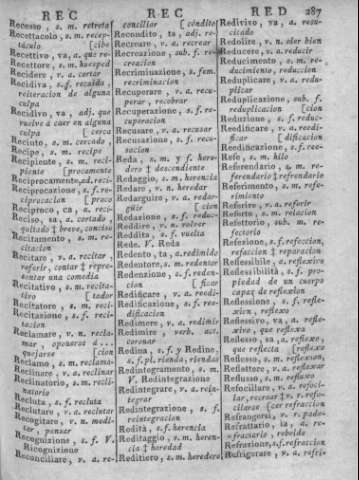 REC
REC
RED 287
Recesso, s. m. retreta
Recettacolo, s. m. recep-
táculo [cibe
Recettivo, va, a. que re-
Recettore, s. m. huesped
Recidere, v. a. cortar
Recidiva, s. f. recaida,
reiteracion de alguna
culpa
Recidivo, va, adj. que
vuelve á caer en alguna
culpa [cerca
Reciuto, a. m. cercado,
Recipe, s. m. recipe
Recipiente, s. m. reci-
piente [procamente
Reciprocamente, ad. reci-
Reciprocazione, s. f. re-
ciprocacion [proco
Reciproco, ca, a. recí-
Reciso, sa, a. cortado,
quitado ‡ breve, conciso
Recitamento, s. m. re-
citacion
Recitare, v. a. recitar,
referir, contar ‡ repre-
sentar una comedia
Recitativo, s. m. recita-
tivo [tador
Recitatore, s. m. reci-
Recitazione, s. f. reci-
tacion
Reclamare, v. n. recla-
mar, oponerse á...
quejarse [cion
Reclamo, s. m. reclama-
Reclinare, v. a. reclinar
Reclinatorio, s. m. recli-
natorio
Recluta, s. f. recluta
Reclutare, v. a. reclutar
Recogitare, v. n. medi-
tar, pensar
Recognizione, s. f. V.
Ricognizione
Reconciliare, v. a. re-
conciliar [cóndito
Recondito, ta, adj. re-
Recreare, v. a. recrear
Recreazione, sub. f. re-
creacion
Recriminazione, s. fem.
recriminacion
Recuperare, v. a. recu-
perar, recobrar
Recuperazione, s. f. re-
cuperacion
Recusare, v. a. recusar
Recusazione, s. f. recu-
sacion
Reda, s. m. y f. here-
dero ‡ descendiente
Redaggio, s. m. herencia
Redaro, v. n. heredar
Redarguire, v. a. redar-
güir [cion
Redazione, s. f. reduc-
Reddire, v. n. volver
Reddita, s. f. vuelta
Rede. V. Reda
Redento, ta, a. redimido
Redentore, s. m. redentor
Redenzione, s. f. reden-
cion [ficar
Redificare, v. a. reedi-
Redificazione, s. f. ree-
dificacion
Redimere, v. a. redimir
Redimire, verb. act.
coronar
Redina, s. f. y Redine,
s. f. pl. rienda, riendas
Redintegramento, s. m.
V. Redintegrazione
Redintegrare, v. a. rein-
tegrar
Redintegrazione, s. f.
reintegracion
Redità, s. f. herencia
Reditaggio, s. m. heren-
cia ‡ heredad
Reditiero, s. m. heredero
Redivivo, va, a. resu-
citado
Redolire, v. n. oler bien
Reducere, v. a. reducir
Reducimento, s. m. re-
ducimiento, reduccion
Reduplicare, v. a. redu-
plicar
Reduplicazione, sub. f.
reduplicacion [cion
Reduzione, s. f. reduc-
Reedificare, v. a. reedi-
ficar [dificacion
Reedificazione, s. f. ree-
Refe, s. m. hilo
Referendario, s. m. re-
ferendario ‡ refrendario
Referimento, s. m. refe-
rimiento
Referire, v. a. referir
Referto, s. m. relacion
Refettorio, sub. m. re-
fectorio
Refezione, s. f. refeccion,
refaccion ‡ reparacion
Reflessibile, a. reflexîvo
Reflessibilità, s. f. pro-
piedad de un cuerpo
capaz de reflexîon
Reflessione, s. f. refle-
xîon, reflexo
Reflessivo, va, a. refle-
xîvo, que reflexa
Reflesso, sa, a. reflexo,
que reflecta [reflexo
Reflesso, s. m. reflexîon,
Reflettere, v. a. reflexar
Reflusso, s. m. refluxo
Refocillare, v. a. refoci-
lar, recrear ‡ v. r. refo-
cilarse [cer refraccion
Refrangersi, v. r. pade-
Refrattario, ia, a. re-
fractario, rebelde
Refrazione, s. f. refraccion
Refrigerare, v. a. refri-